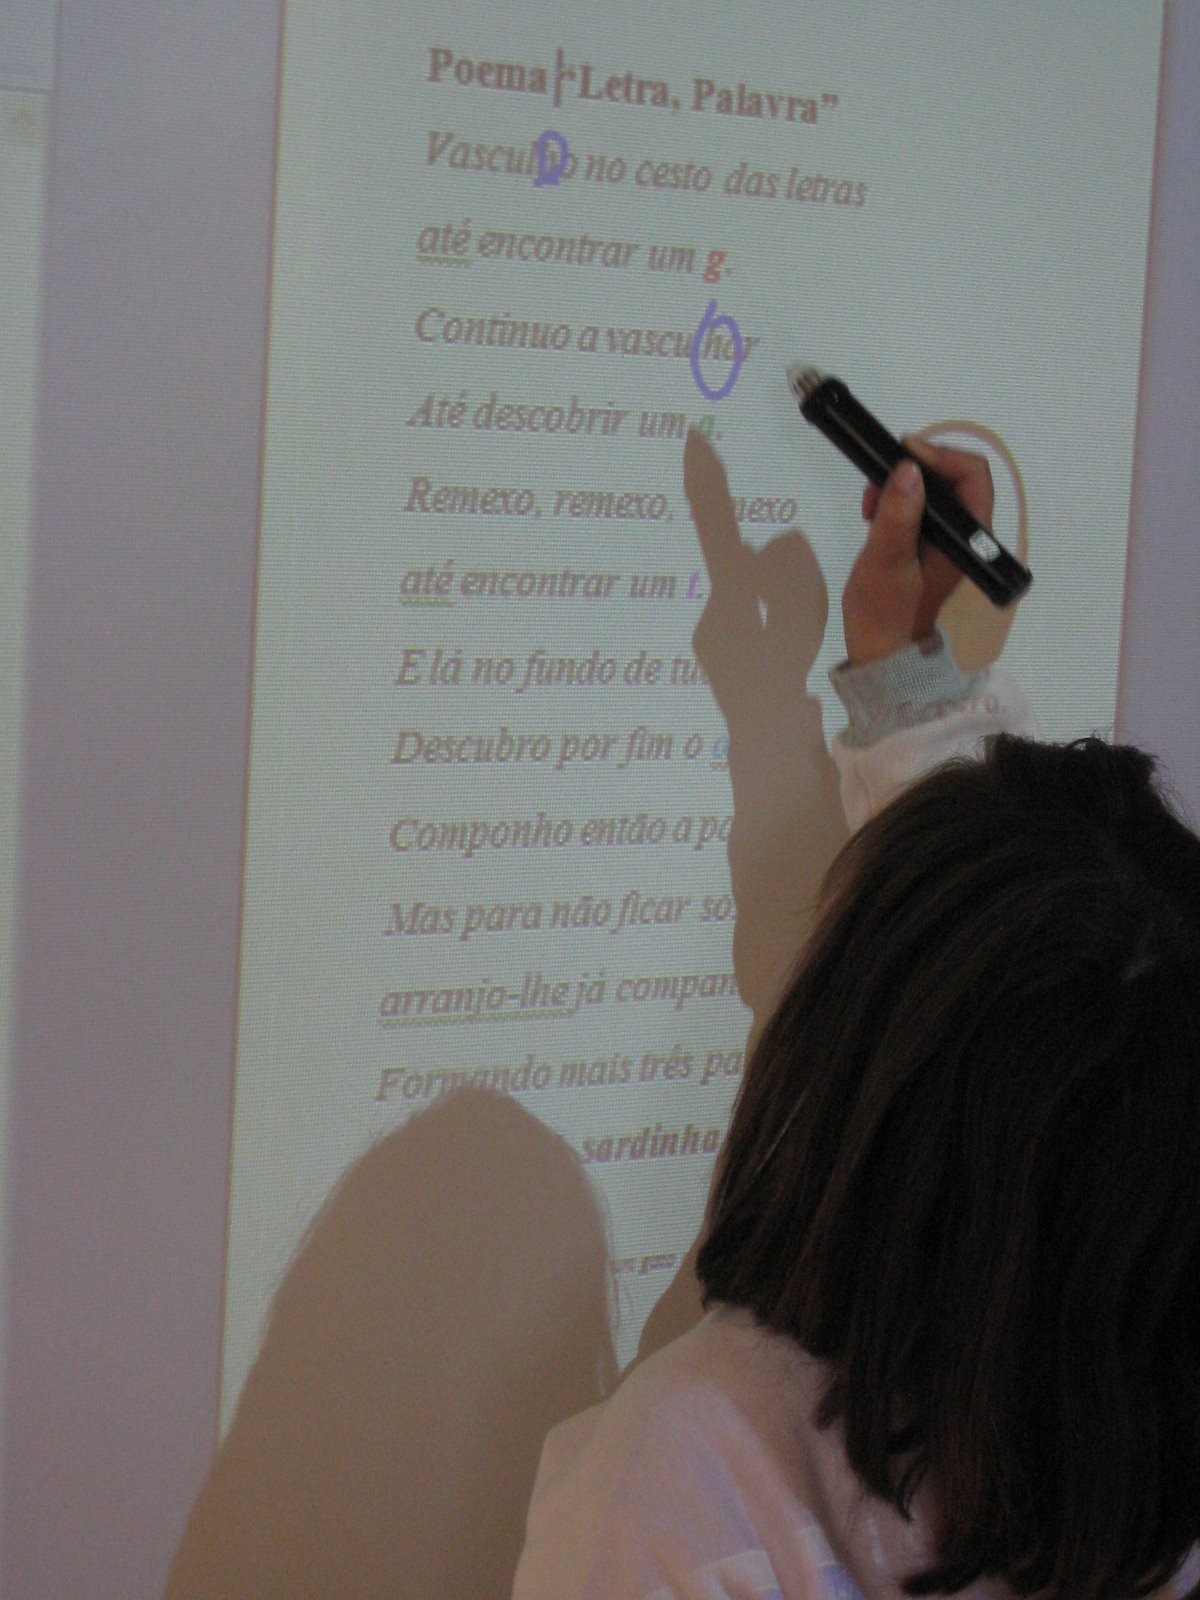 Poema “Letra, Palavra”
Vasculho no cesto das letras
até encontrar um g.
Continuo a vasculhar
Até descobrir um a.
Remexo, remexo,
até encontrar um t.
E lá no fundo de
Descubro por fim o
Componho então a
Mas para não ficar
arranjo-lhe já
Formando mais três
sardinha